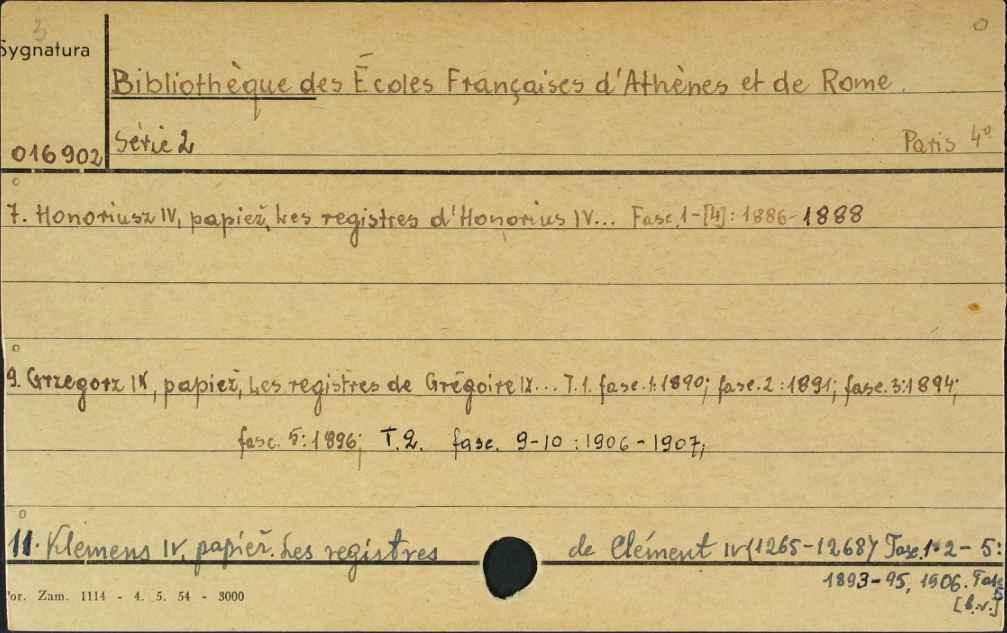 3
Sygnatura
Bibliothèque des Écoles Françaises d'Athènes et de Rome.
016902 Série 2 Paris 4º
7. Honoriusz IV, papież, Les registres d'Honorius IV... Fasc. 1-[4]: 1886-1888
9. Grzegorz IX, papież, Les registres de Grégoire IX... T.1. fasc. 1:1890; fasc. 2:1891; fasc. 3:1894;
fasc. 5:1896; T.2. fasc. 9-10:1906-1907;
11. Klemens IV, papież. Les registres de Clément IV (1265-1268) Fasc. 1 2-5:
1893-95, 1906. Fasc
5
[b.r.]
Por. Zam. 1114 - 4. 5. 54 - 3000